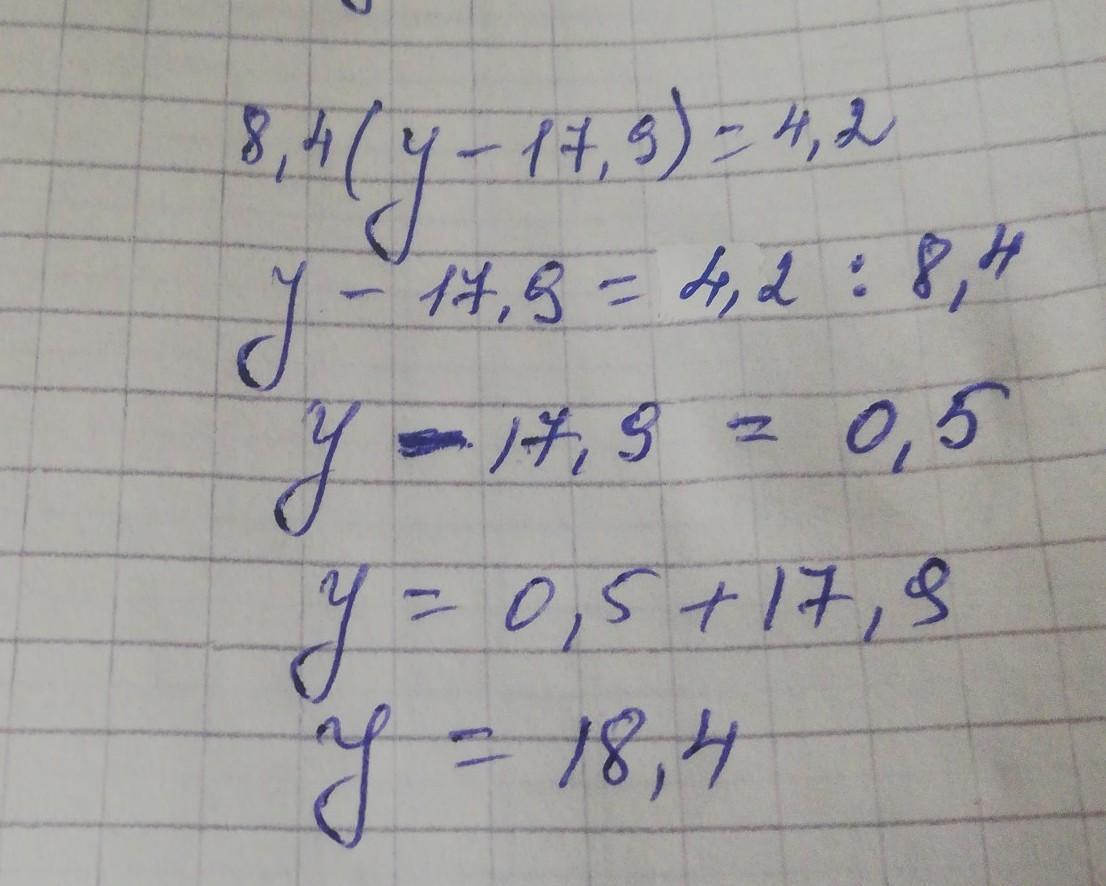 8,4(y-17,9)=4,2
y-17,9=4,2:8,4
y-17,9=0,5
y=0,5+17,9
y=18,4